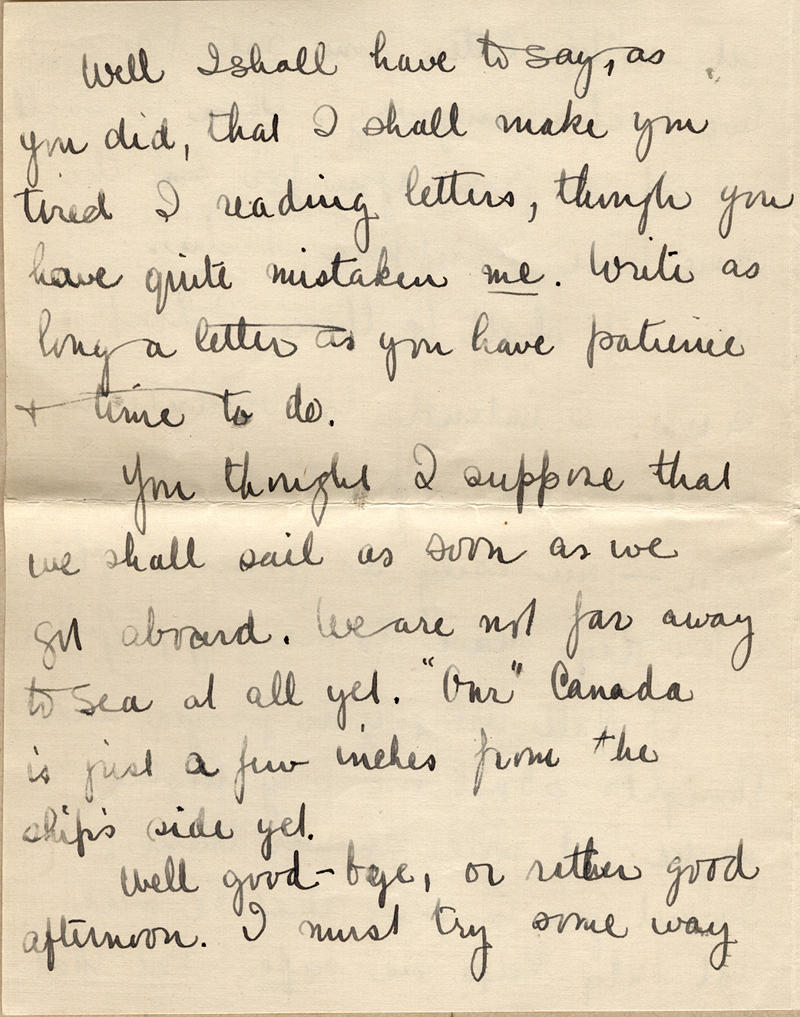 Well I shall have to say, as
you did, that I shall make you
tired I reading letters, though you
have quite mistaken me. Write as
long a letter as you have patience
+ time to do.
You thought I suppose that
we shall sail as soon as we
got aboard. We are not far away
to sea at all yet. "Our" Canada
is just a few inches from the
ship's side yet.
Well good-bye, or rather good
afternoon. I must try some way